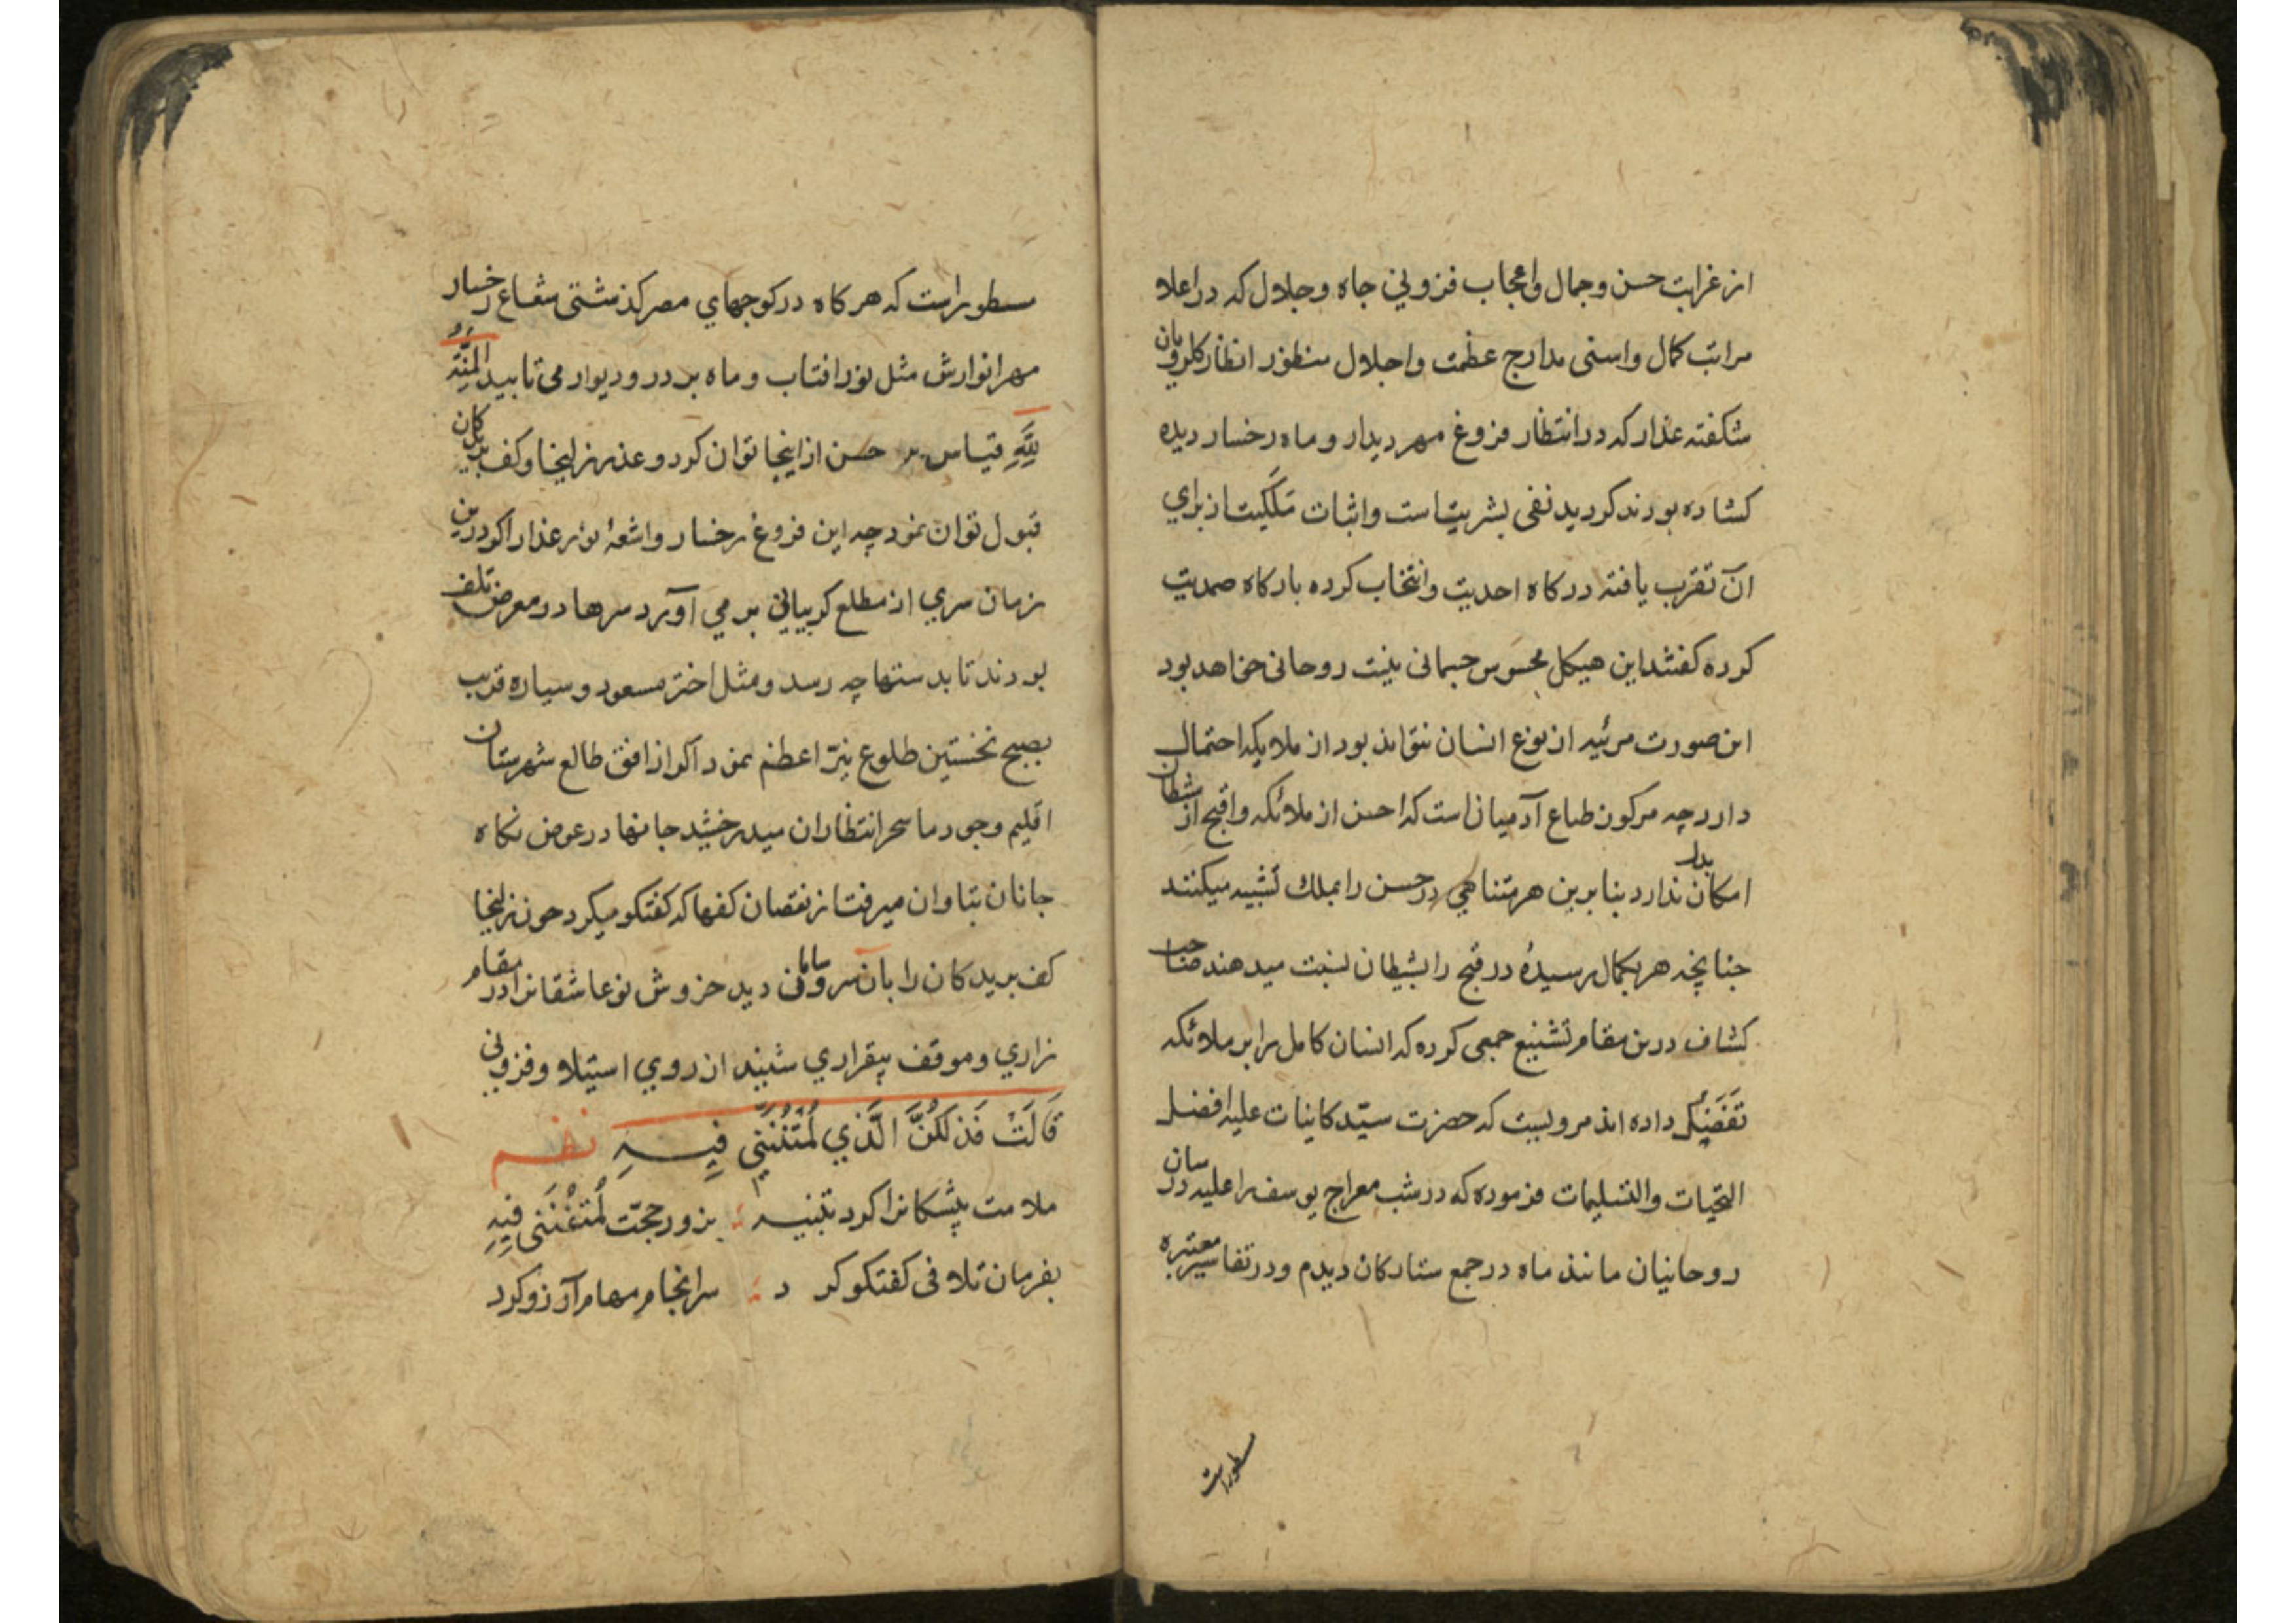 از غرابت حسن و جمال و اعجاب فزونی جاه و جلال که در اعلا
مراتب کمال و اسنی مدارج عظمت و اجلال منظور انظار کلرویان
شکفته عذار که در انتظار فروغ مهر دیدار و ماه رخسار دیده
کشاده بودند کردید نفی بشریت است و اثبات ملکیت از برای
آن تقرب یافته درکاه احدیت و انتخاب کرده بارکاه صمدیت
کرده کفتند این هیکل محسوس جسمانی نیت روحانی خواهد بود
این صورت مرئیه از نوع انسان نتواند بود از ملایکه احتمال
دارد چه مرکون طباع آدمیان است که احسن از ملائکه و اقبح از شطان
امکان ندارد بنا برین هر متناهی در حسن را بملك تشبیه میکنند
جنانچه هر بکمال رسیدهٔ در قبح را بشیطان نسبت میدهند صاحب
کشاف درین مقام تشنیع جمعی کرده که انسان کامل را بر ملائکه
تفضیل داده اند مرویست که حضرت سیّد کاینات علیه افضل
التحیات والتسلیمات فرموده که در شب معراج یوسف را علیه در سان
روحانیان مانند ماه در جمع ستارکان دیدم و در تفاسیر معتبره
سطور است
مسطور است که هر کاه در کوجهای مصر کذشتی شعاع رخسار
مهر انوارش مثل نور افتاب و ماه بر در و دیوار می تابید المنّة
لِلّهِ قیاس حسن از اینجا توان کرد و عذر زلیخا و کف بریدکان
قبول توان نمود چه این فروغ رخسار و اشعهٔ نور عذار اکر درین
زمان سری از مطلع کریبانی بر می آورد سرها در معرض تلف
بودند تا بدستها چه رسد و مثل اختر مسعود و سیاره قریب
بصبح نخستین طلوع نیّر اعظم نمود اکر از افق طالع شهرستان
اقلیم وجود ما سحر انتظاران میدرخشید جانها در عوض نکاه
جانان بتاوان میرفت از نقصان کفها که کفتکو میکرد چون زلیخا
کف بریدکان را بآن سر و سامانی دید خروش نوعاشقانرا در مقام
زاری و موقف بیقراری شنید از روی استیلا و فزونی
قَالَتْ فَذلِكُنَّ الَّذي لُمْتُنَّنِي فِيهِ نظم
ملامت پیشکانرا کرد تنبیه بزور حجّت لُمْتُنَّنی فِیهِ
بفرمان تلافی کفتکو کرد سرانجام مهام آرزو کرد